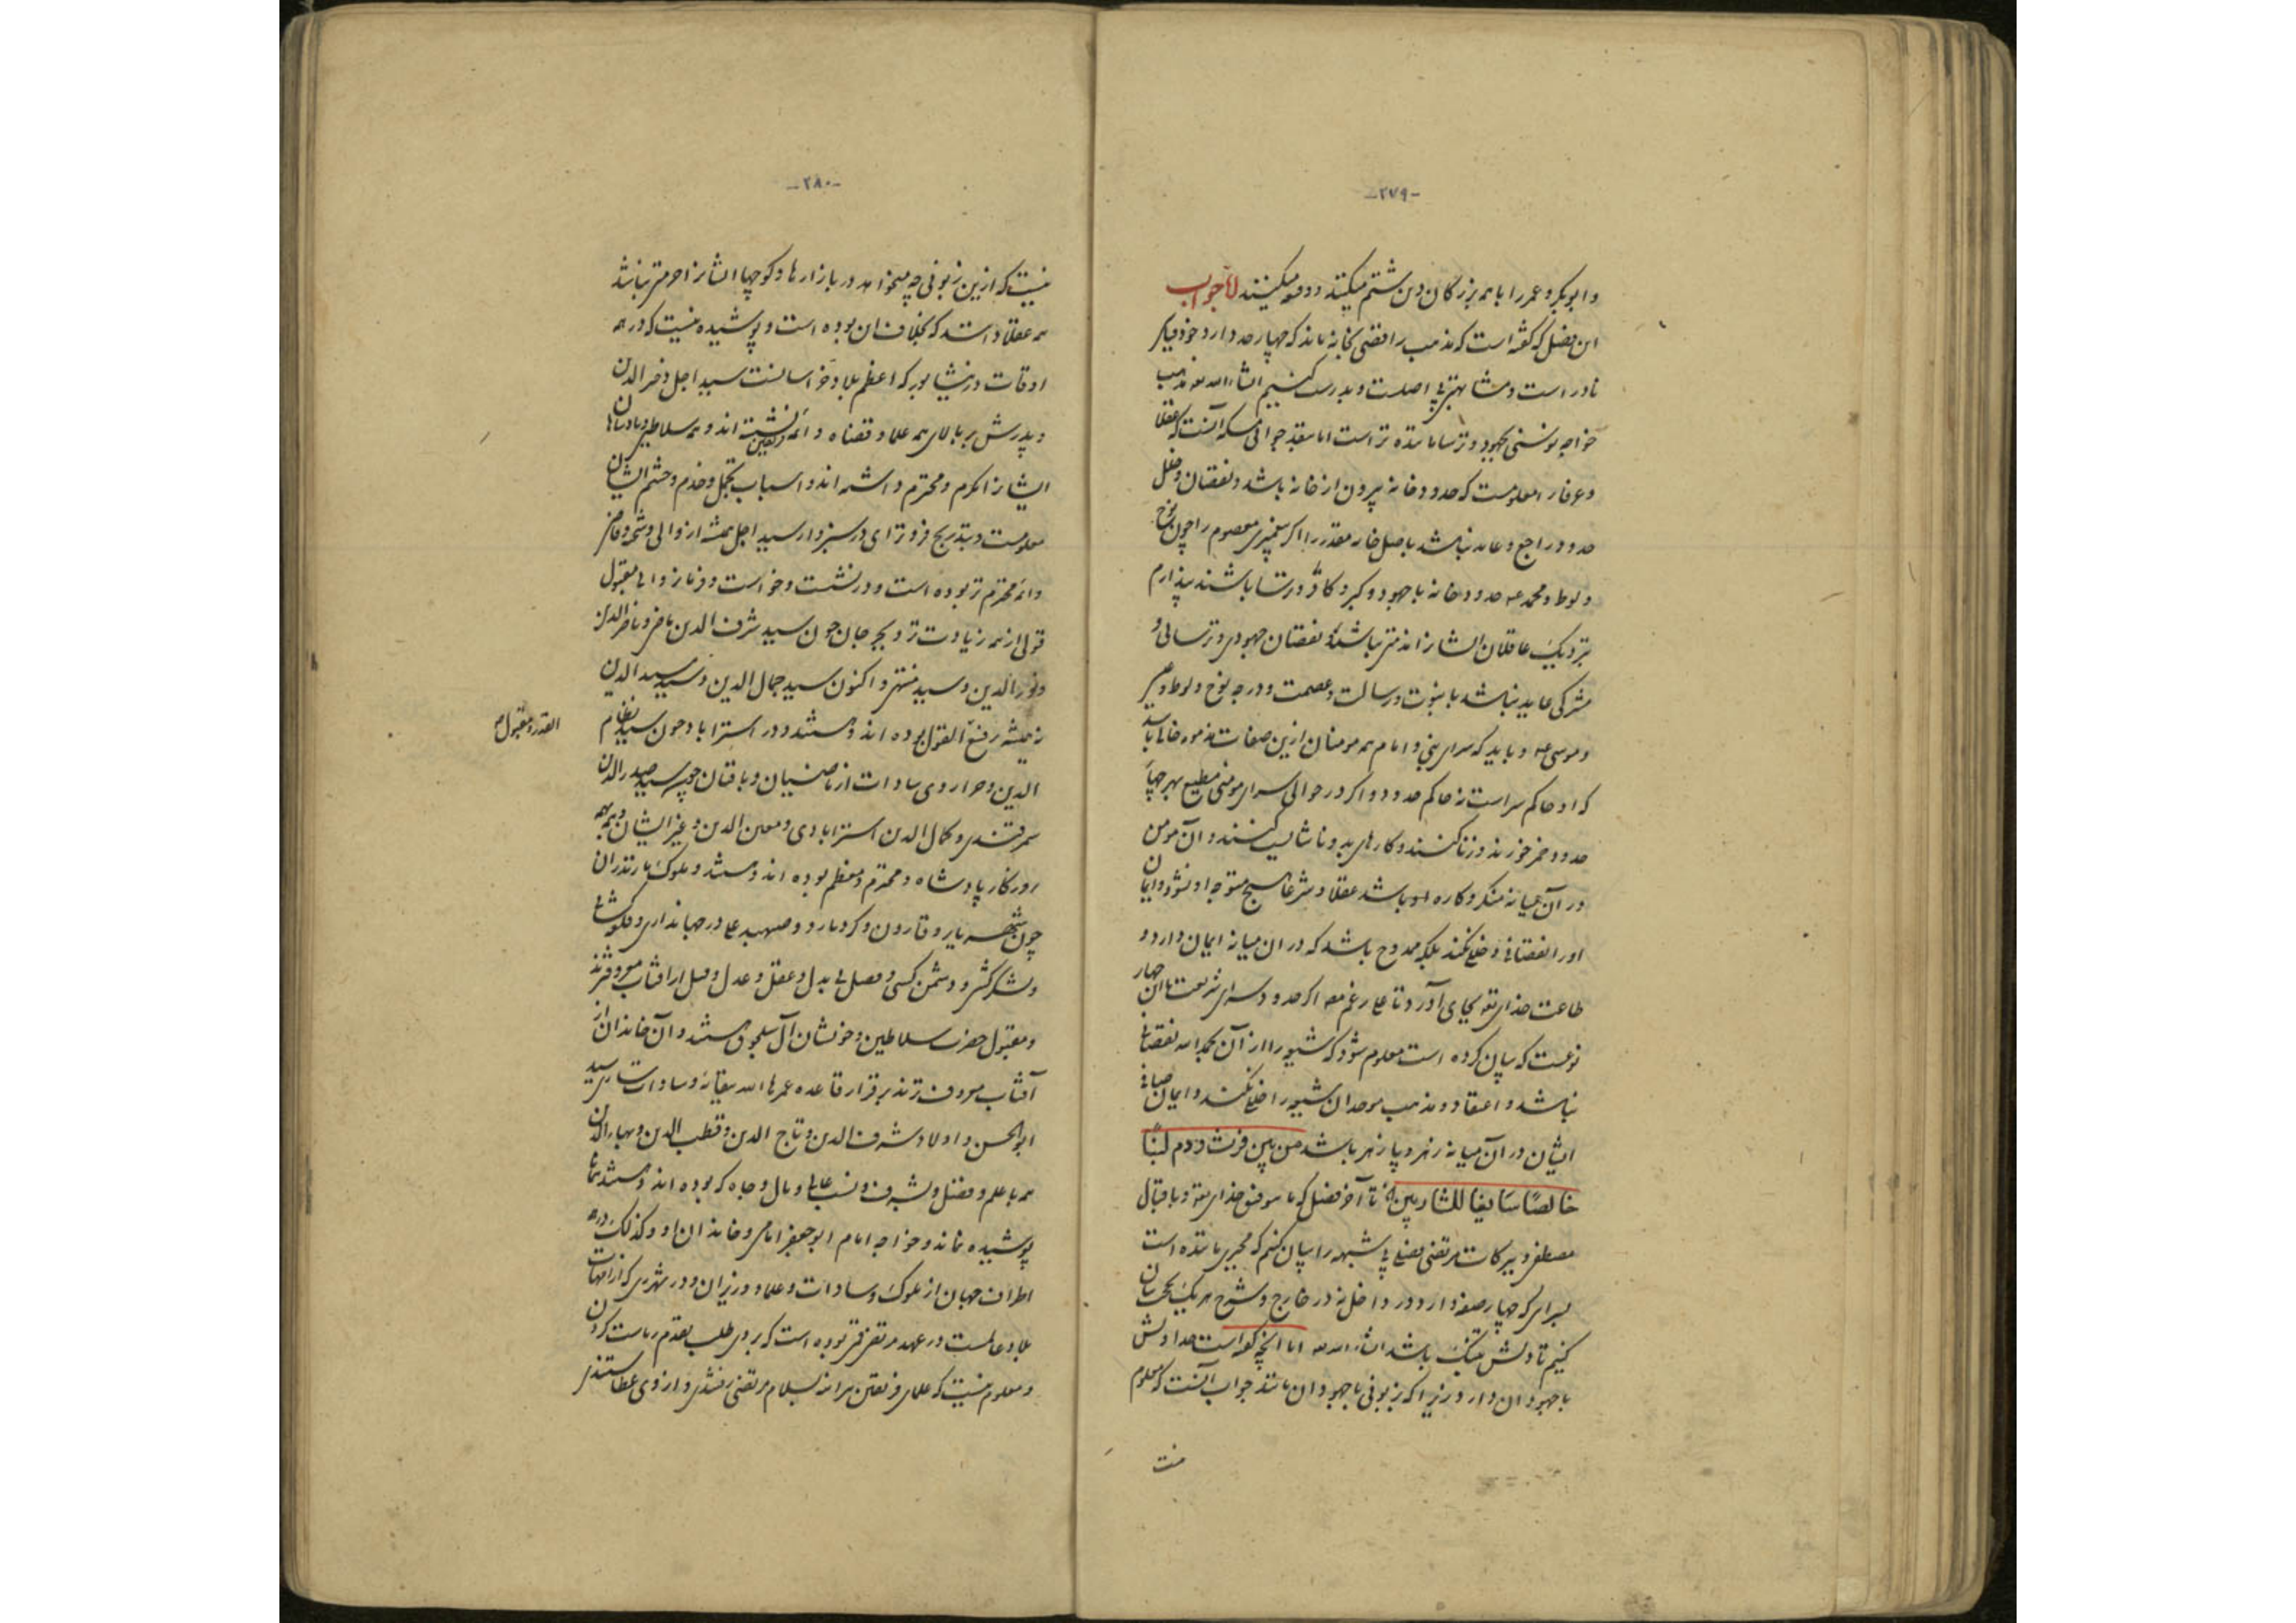 -۲۷۹-
و ابوبکر و عمر را با همه بزرگان دین شتم میکنند و وقیعه میکنند اما جواب
این فصل که گفته است که مذهب رافضی بخانه ماند که چهار حد دارد خود فکر
نادر است و مشابهتی بی اصلست و بدرست کنیم انشاء الله که مذهب
خواجه نوسنی بجهود و ترسا ماننده تر است اما بقدر جوابی مسکه آنست که عقلا
و عرفا را معلومست که حدود خانه بیرون از خانه باشد و نقصان و خلل
حدود راجع و عاید نباشد باصل خانه مقدرا اگر پیغمبری معصوم را چون نوح
و لوط و محمد عه حدود خانه با جهود و گبر و کافر و ترسا باشند پندارم
بنزدیک عاقلان ایشانرا مذمتی نباشد و نقصان جهودی و ترسائی و
مشرکی عاید نباشد با نبوت و رسالت و عصمت و درجه نوح و لوط و خضر
و موسی عه و باید که سرای نبی و امام همه مومنان ازین صفات مذمومه خالی باشد
که او حاکم سراست نه حاکم حدود و اگر در حوالی سرای مومنی مطیع بهر چهار
حدود خمر خورند و زنا کنند و کارهای بد و ناشایست کنند و آن مومن
در آن میانه منکر و کاره او باشد عقلا و شرعا هیچ متوجه او نشود و ایمان
او را نقصانی و خللی نکند بلکه ممدوح باشد که در ان میانه ایمان دارد و
طاعت خدای تع بجای آورد تا علی رغم اگر حدود سرای شریعت باان چهار
نوعست که بیان کرده است معلوم شود که شیعه را از آن بحمد الله نقصانی
نباشد و اعتقاد و مذهب موحدان شیعه را خللی نکند و ایمان صافی
ایشان در آن میانه زهر و پازهر باشد من بین فرث و دم لبنا
خالصا سایغا للشاربین تا آخر فصل که ما بتوفیق خدای تع و باقبال
مصطفی و ببرکات مرتضی بعضی شبهه را بیان کنیم که مجبری ماننده است
بسرای که چهار صفه دارد در داخل نه در خارج و شرح هر یک بحث بیان
کنیم تا دلش خنک باشد انشاء الله تع اما آنچه گفته است حد اولش
با جهودان دارد زیرا که بزبونی با جهودان مانند جواب آنست که معلوم
نیست
-۲۸۰-
نیست که ازین زبونی چه میخواهد در بازارها و کوچها ایشانرا حرمتی نباشد
همه عقلا دانند که بخلاف ان بوده است و پوشیده نیست که در همه
اوقات در نیشابور که اعظم بلاد خراسانست سید اجل ذخر الدین
و پدرش بر بالای همه علما و قضاه و ائمه فریقین نشسته اند و همه سلاطین و پادشاهان
ایشانرا مکرم و محترم داشته اند و اسباب تجمل و خدم و حشم ایشان
معلومست و بتدریج فروتر آی در سبزوار سید اجل همیشه از والی و شحنه و قاضی
و ائمه محترم تر بوده است و در نشست و خواست و فرمانروایی مقبول
قولی از همه زیادت تر و بجرجان چون سید شرف الدین ناصر و ناصر الدین
و نور الدین و سید منتهی و اکنون سید جمال الدین و سید سدید الدین
نه همیشه رفیع القول بوده اند و هستند و در استراباد چون سید نظام
القدر و مقبول صح
الدین و حرار وی سادات از ناصبیان و باقیان چون سید صدر الدین
سمرقندی و کمال الدین استرابادی و معین الدین و غیر ایشان و بهمه
روزگار پادشاه و محترم و معظم بوده اند و هستند و ملوک مازندران
چون شهریار و قارون و کردبازو و صهبد علی در جهانداری و ملوک
و لشکرکشی و دشمن کشی و فصلی بدل و عقل و عدل و فضل از آفتاب معروفترند
و مقبول حضرت سلاطین و خویشان آل سلجوق هستند و آن خاندان از
آفتاب معروف ترند بر قرار قاعده عمرها الله تعالی و سادات ساری سید
ابوالحسن و اولاد شرف الدین و تاج الدین و قطب الدین و بهاء الدین
همه با علم و فضل و شرف و نسب عالی و مال و جاه که بوده اند و هستند تا
پوشیده نماند و خواجه امام ابو جعفر امامی و خاندان او و کذلک در همه
اطراف جهان از ملوک و سادات و علما و وزیران و در شهر ری که از امهات
بلاد عالمست در عهد مرتضی قمی بوده است که بروی طلب تقدم ریاست کردن
و معلوم نیست که علمای فریقین همه بسلام مرتضی رفتندی و از وی عطا ستدندی